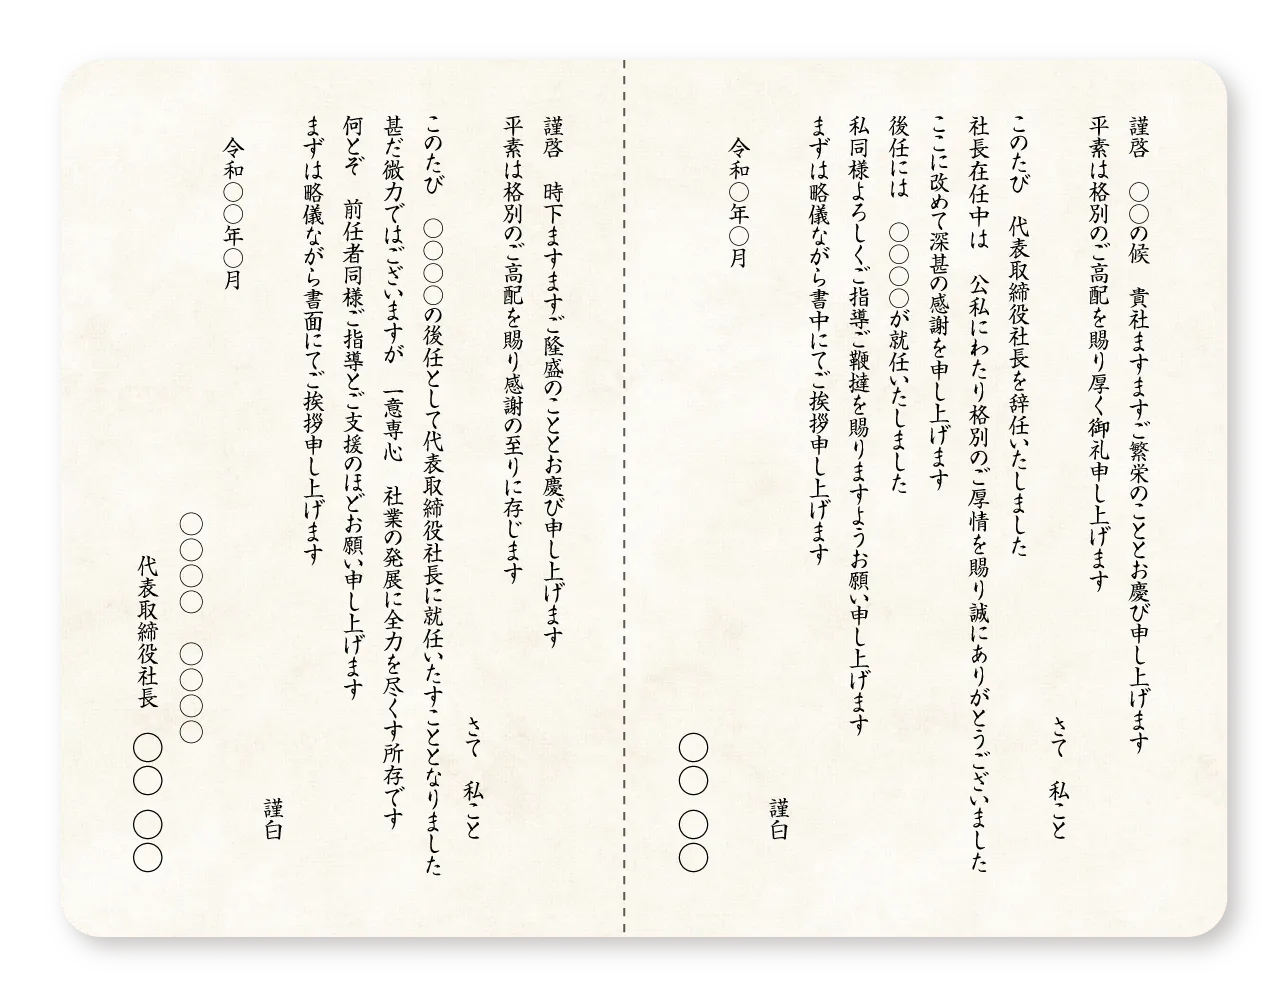 謹啓　〇〇の候　貴社ますますご繁栄のこととお慶び申し上げます
平素は格別のご高配を賜り厚く御礼申し上げます
さて　私こと
このたび　代表取締役社長を辞任いたしました
社長在任中は　公私にわたり格別のご厚情を賜り誠にありがとうございました
ここに改めて深甚の感謝を申し上げます
後任には　〇〇〇〇が就任いたしました
私同様よろしくご指導ご鞭撻を賜りますようお願い申し上げます
まずは略儀ながら書中にてご挨拶申し上げます
謹白
令和〇年〇月
〇〇　〇〇
謹啓　時下ますますご隆盛のこととお慶び申し上げます
平素は格別のご高配を賜り感謝の至りに存じます
さて　私こと
このたび　〇〇〇〇の後任として代表取締役社長に就任いたすこととなりました
甚だ微力ではございますが　一意専心　社業の発展に全力を尽くす所存です
何とぞ　前任者同様ご指導とご支援のほどお願い申し上げます
まずは略儀ながら書面にてご挨拶申し上げます
謹白
令和〇〇年〇月
〇〇〇〇　〇〇〇〇
代表取締役社長　〇〇　〇〇